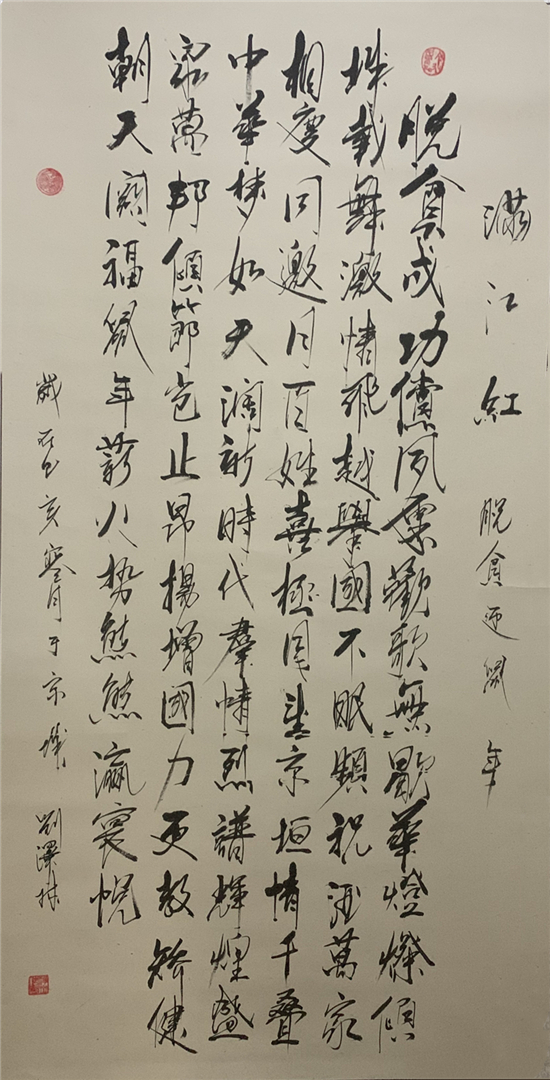 滿江紅 脱貧迎鼠年
脱貧成功償夙歡歌無歇華燈燦傾
城載舞激情飛越舉國不眠頻祝酒萬家
相慶同邀月百姓喜極京垣情千疊
中華夢如天闊新時代羣情烈譜輝煌盛
萬邦傾節豈止昂揚增國力更教矯健
朝天闕福鼠年薪火势熊熊瀛寰悦
歲在己亥月于京城 劉澤林